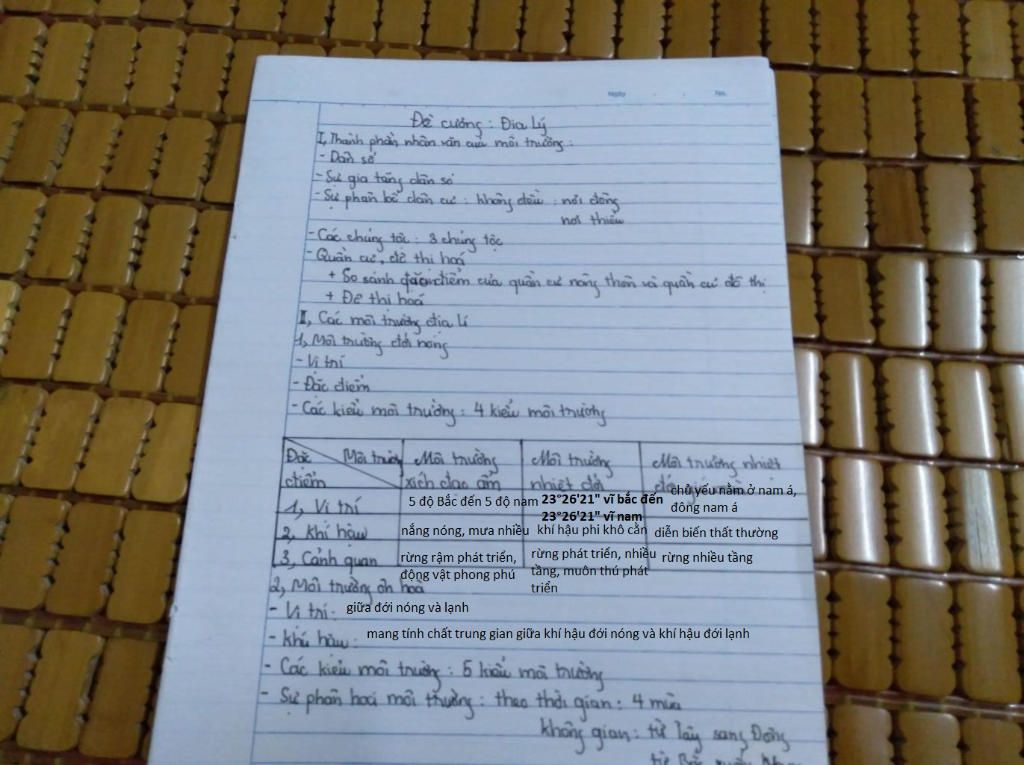 Ngày No.
Đề cương: Địa Lý
I, Thành phần nhân văn của môi trường:
- Dân số
- Sự gia tăng dân số
- Sự phân bố dân cư: không đều: nơi đông
nơi thiếu
- Các chủng tộc: 3 chủng tộc
- Quần cư, đô thị hoá
+ So sánh đặc điểm của quần cư nông thôn và quần cư đô thị
+ Đô thị hoá
II, Các môi trường địa lí
1, Môi trường đới nóng
- Vị trí
- Đặc điểm
- Các kiểu môi trường: 4 kiểu môi trường
Đặc điểm Môi trường
Môi trường xích đạo ẩm
Môi trường nhiệt đới
Môi trường nhiệt
1, Vị trí
5 độ Bắc đến 5 độ nam
23°26'21" vĩ bắc đến
23°26'21" vĩ nam
chủ yếu nằm ở nam á,
đông nam á
2, Khí hậu
nắng nóng, mưa nhiều
khí hậu phi khô cằn
diễn biến thất thường
3, Cảnh quan
rừng rậm phát triển,
động vật phong phú
rừng phát triển, nhiều
tầng, muôn thú phát
triển
rừng nhiều tầng
2, Môi trường ôn hoà
- Vị trí: giữa đới nóng và lạnh
- Khí hậu: mang tính chất trung gian giữa khí hậu đới nóng và khí hậu đới lạnh
- Các kiểu môi trường: 5 kiểu môi trường
- Sự phân hoá môi trường: theo thời gian: 4 mùa
không gian: từ Tây sang Đông
từ Bắc